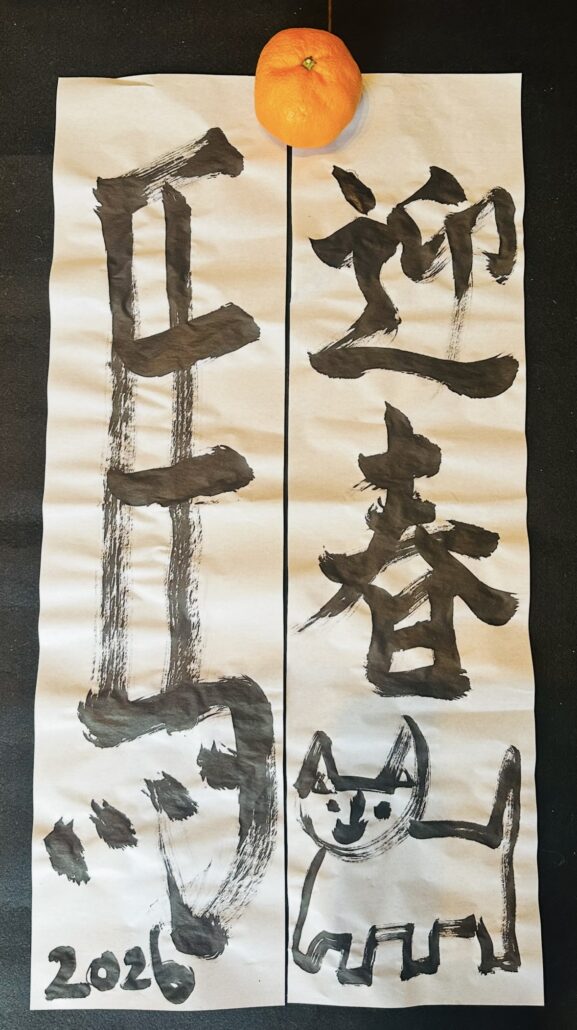 迎春
馬
2026